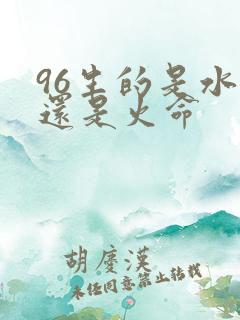 96生的是水
還是火命
胡慶漢
未经同意禁止转载